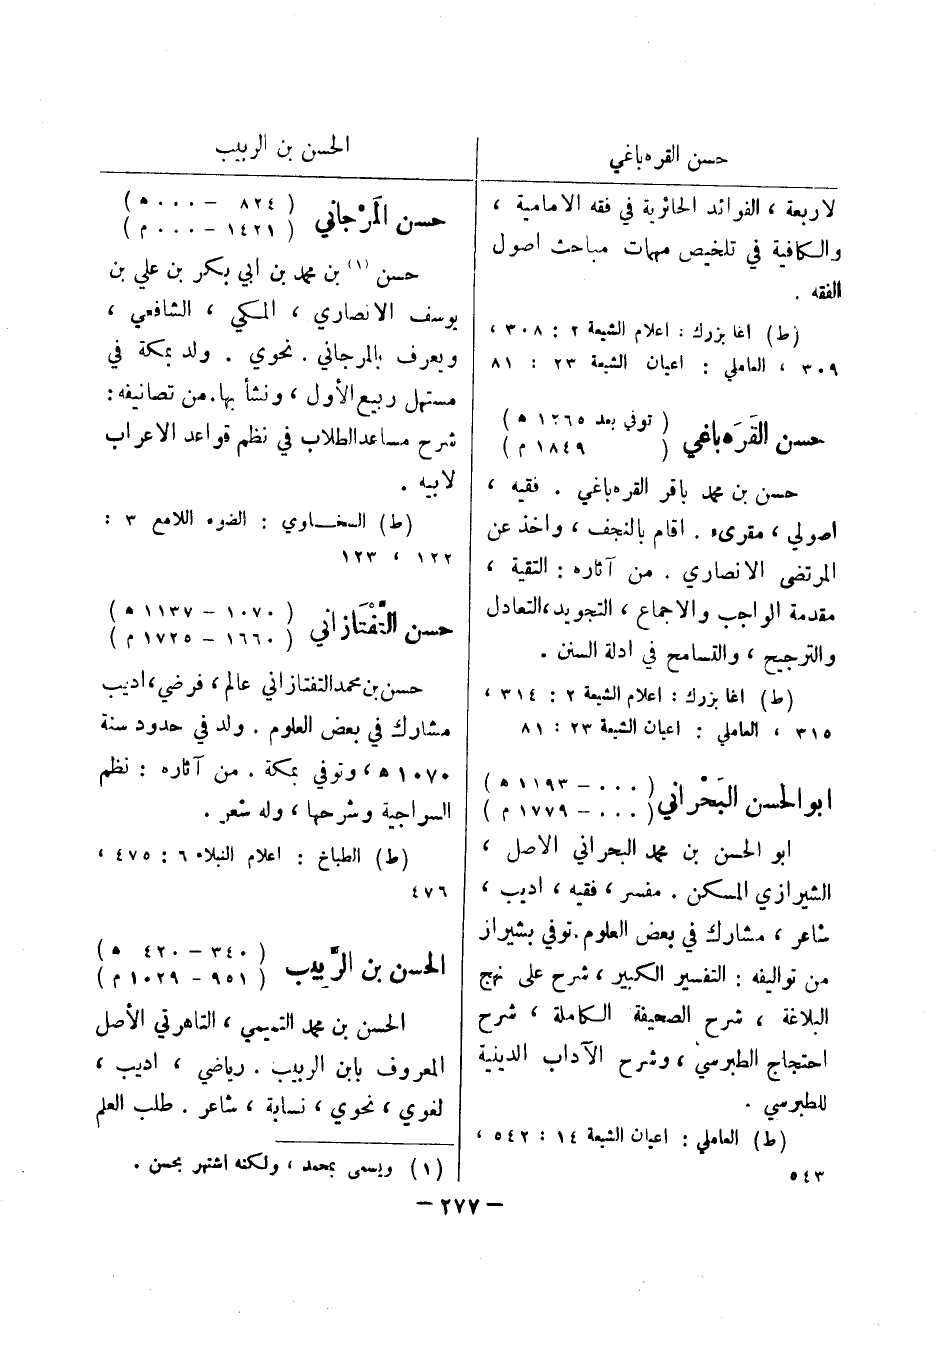 حسن القره باغي
لاربعة ، الفوائد الحائرية في فقه الامامية ،
والكافية في تلخيص مهمات مباحث اصول
الفقه .
(ط) اغا بزرك : اعلام الشيعة ٢ : ٣٠٨ ،
٣٠٩ ، العاملي : اعيان الشيعة ٢٣ : ٨١
حسن القَرَه باغي ( توفي بعد ١٢٦٥ ه )
( ١٨٤٩ م )
حسن بن محمد باقر القره باغي . فقيه ،
اصولي ، مقرىء . اقام بالنجف ، واخذ عن
المرتضى الانصاري . من آثاره : التقية ،
مقدمة الواجب والاجماع ، التجويد ، التعادل
والترجيح ، والتسامح في ادلة السنن .
(ط) اغا بزرك : اعلام الشيعة ٢ : ٣١٤ ،
٣١٥ ، العاملي : اعيان الشيعة ٢٣ : ٨١
ابو الحسن البَحْراني ( ... – ١١٩٣ ه )
( ... – ١٧٧٩ م )
ابو الحسن بن محمد البحراني الاصل ،
الشيرازي المسكن . مفسر ، فقيه ، اديب ،
شاعر ، مشارك في بعض العلوم . توفي بشيراز
من تواليفه : التفسير الكبير ، شرح على نهج
البلاغة ، شرح الصحيفة الكاملة ، شرح
احتجاج الطبرسي ، وشرح الآداب الدينية
للطبرسي .
(ط) العاملي : اعيان الشيعة ١٤ : ٥٤٢ ،
٥٤٣
الحسن بن الربيب
حسن المَرْجاني ( ٨٢٤ – ٠٠٠ ه )
( ١٤٢١ – ٠٠٠ م )
حسن (١) بن محمد بن ابي بكر بن علي بن
يوسف الانصاري ، المكي ، الشافعي ،
ويعرف بالمرجاني . نحوي . ولد بمكة في
مستهل ربيع الأول ، ونشأ بها . من تصانيفه :
شرح مساعد الطلاب في نظم قواعد الاعراب
لابيه .
(ط) السخاوي : الضوء اللامع ٣ :
١٢٢ ، ١٢٣
حسن التَّفْتَازاني ( ١٠٧٠ – ١١٣٧ ه )
( ١٦٦٠ – ١٧٢٥ م )
حسن بن محمد التفتازاني عالم ، فرضي ، اديب
مشارك في بعض العلوم . ولد في حدود سنة
١٠٧٠ ه ، وتوفي بمكة . من آثاره : نظم
السراجية وشرحها ، وله شعر .
(ط) الطباخ : اعلام النبلاء ٦ : ٤٧٥ ،
٤٧٦
الحسن بن الرَّبيب ( ٣٤٠ – ٤٢٠ ه )
( ٩٥١ – ١٠٢٩ م )
الحسن بن محمد التميمي ، التاهرتي الأصل
المعروف بابن الربيب . رياضي ، اديب ،
لغوي ، نحوي ، نسابة ، شاعر . طلب العلم
(١) ويسمى بمحمد ، ولكنه اشتهر بحسن .
– ٢٧٧ –